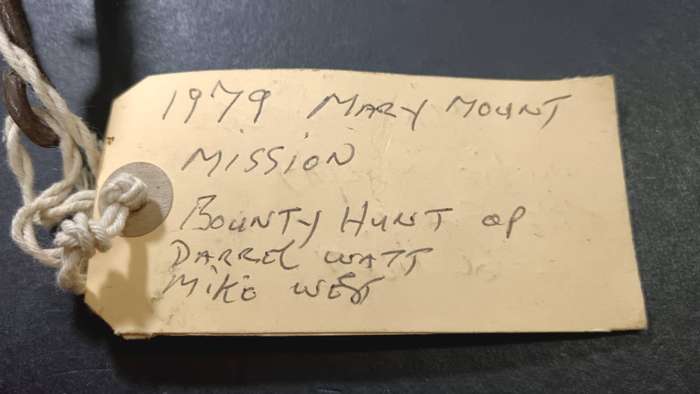 1979 MARY MOUNT
MISSION
BOUNTY HUNT OP
DARREL WATT
MIKE WEST